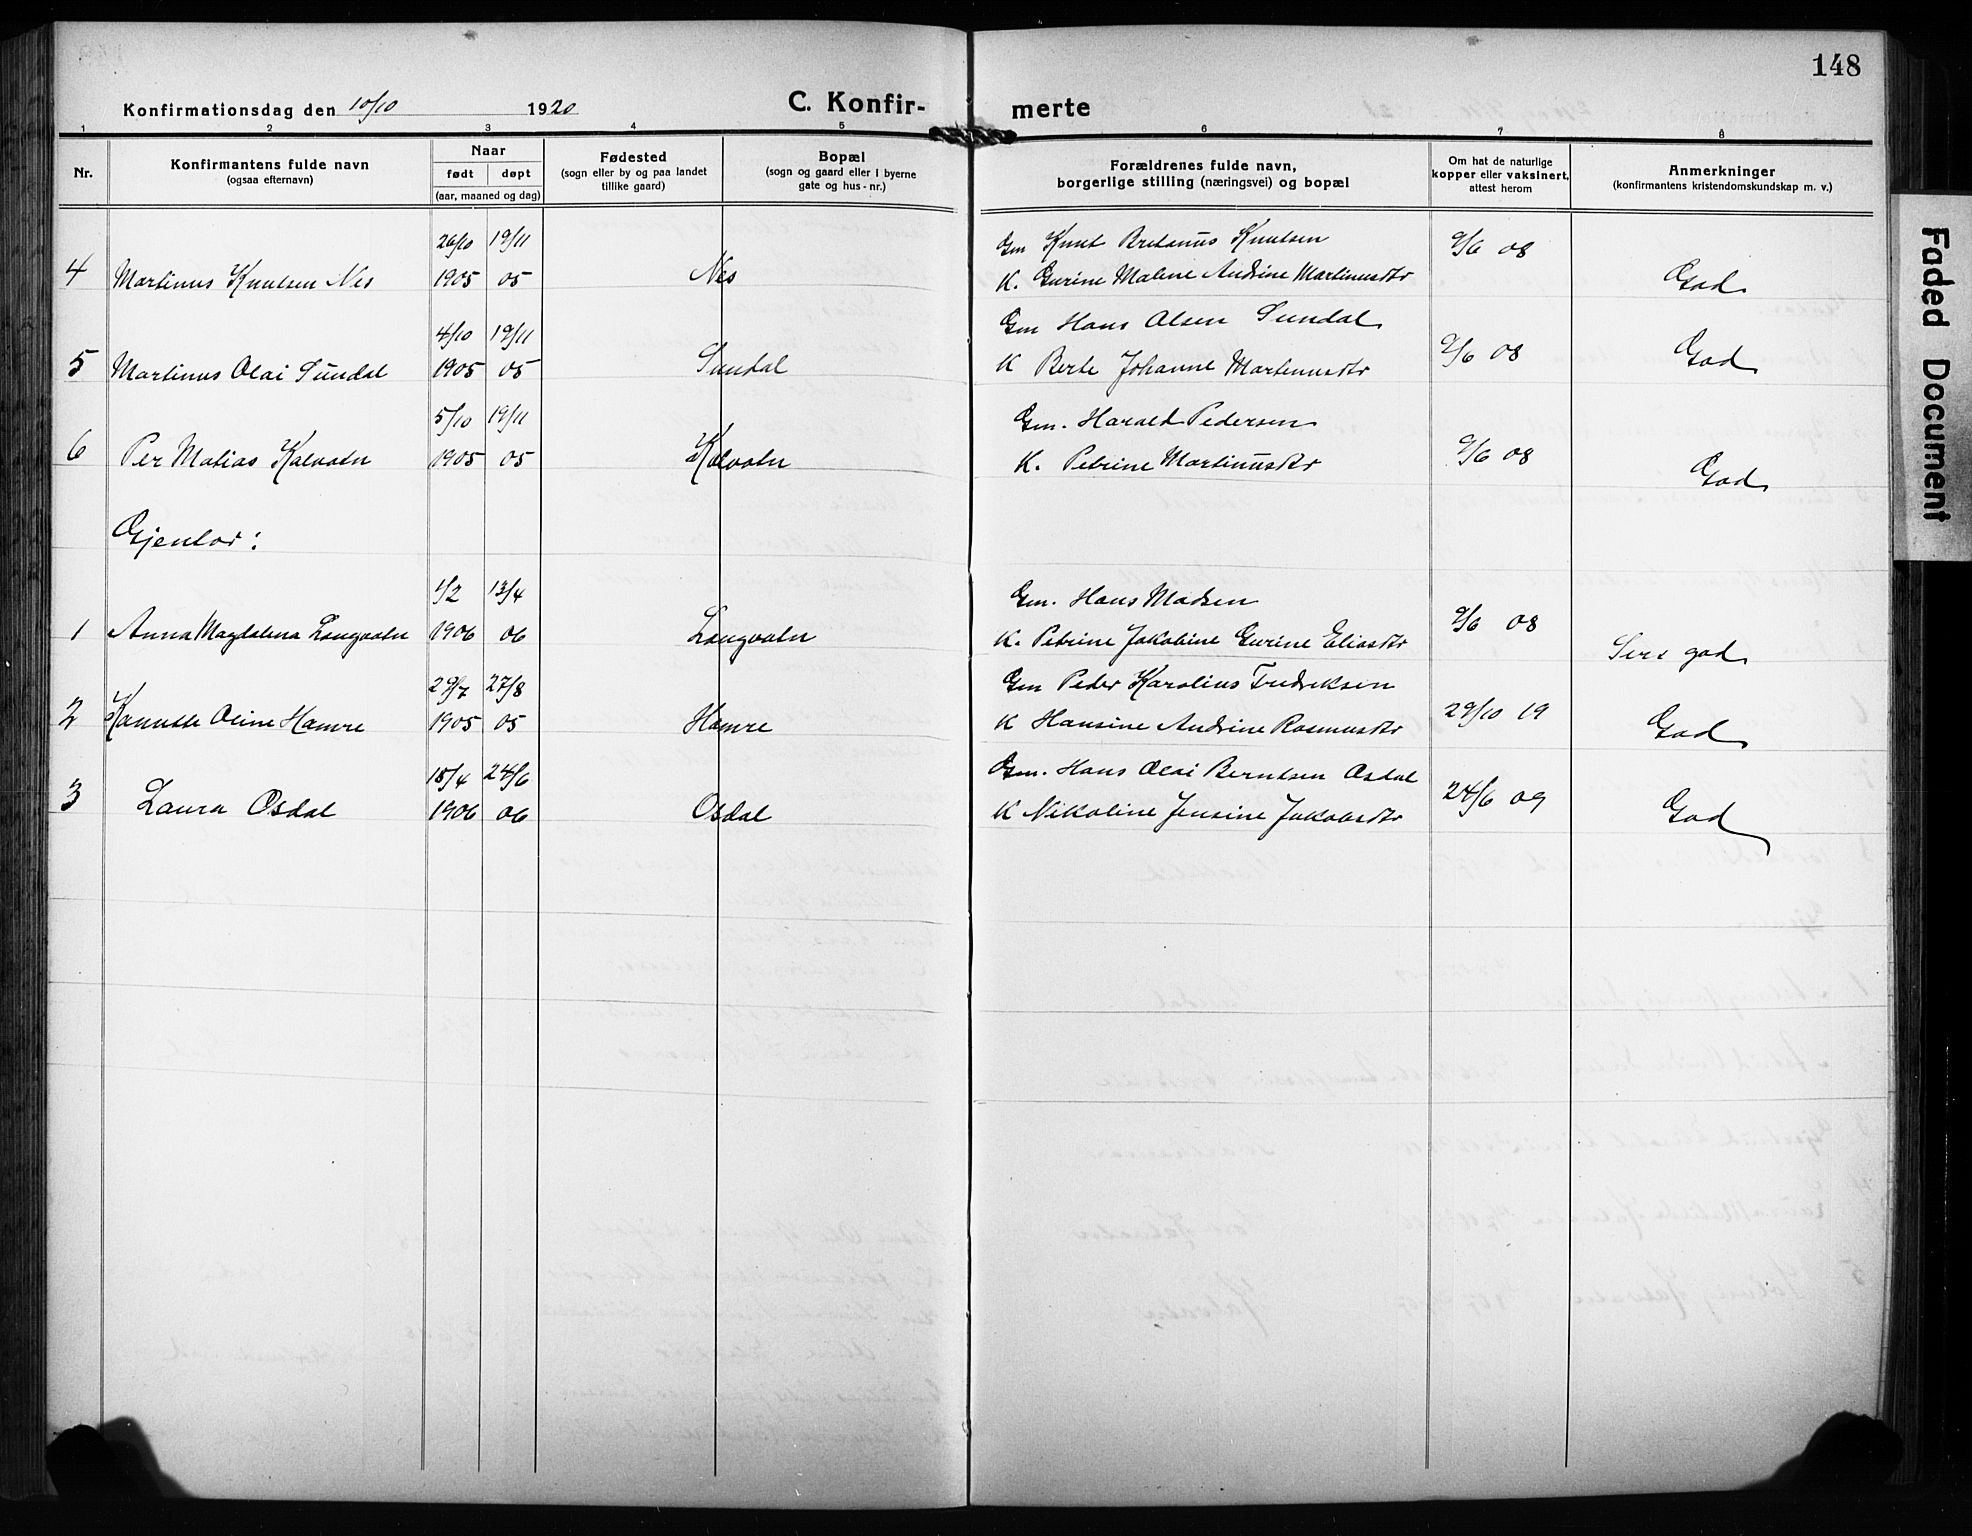 148
Konfirmationsdag den 10/10 1920
C. Konfir- merte
1 2 3 4 5 6 7 8
Nr.
Konfirmantens fulde navn
(ogsaa efternavn)
Naar
født døpt
(aar, maaned og dag)
Fødested
(sogn eller by og paa landet
tillike gaard)
Bopæl
(sogn og gaard eller i byerne
gate og hus-nr.)
Forældrenes fulde navn,
borgerlige stilling (næringsvei) og bopæl
Om hat de naturlige
kopper eller vaksinert,
attest herom
Anmerkninger
(konfirmantens kristendomskundskap m. v.)
26/10 19/11 Gm Knut Bretanus Knutsen 9/6 08
4 Martinus Knutsen Nes 1905 05 Nes K. Gurine Malene Andrine Martinusdtr God
4/10 19/11 Gm Hans Olsen Sundal
5 Martinus Olai Sundal 1905 05 Sundal K Berte Johanne Martinusdtr 9/6 08 God
5/10 19/11 Gm. Harald Pedersen
6 Per Matias Kalvatn 1905 05 Kalvatn K. Petrine Martinusdtr 9/6 08 God
Gjentor:
1/2 13/4 Gm. Hans Madsen
1 Anna Magdalena Langvatn 1906 06 Langvatn K. Petrine Jakobine Gurine Eliasdtr 9/6 08 Sers god
29/7 27/8 Gm Peder Karolius Fredriksen
2 Oline Hamre 1905 05 Hamre K Hansine Andrine Rasmusdtr 29/10 19 God
15/4 24/6 Gm. Hans Olai Berntsen Osdal
3 Laura Osdal 1906 06 Osdal K Nikoline Jensine Jakobsdtr 24/6 09 God
Faded Document